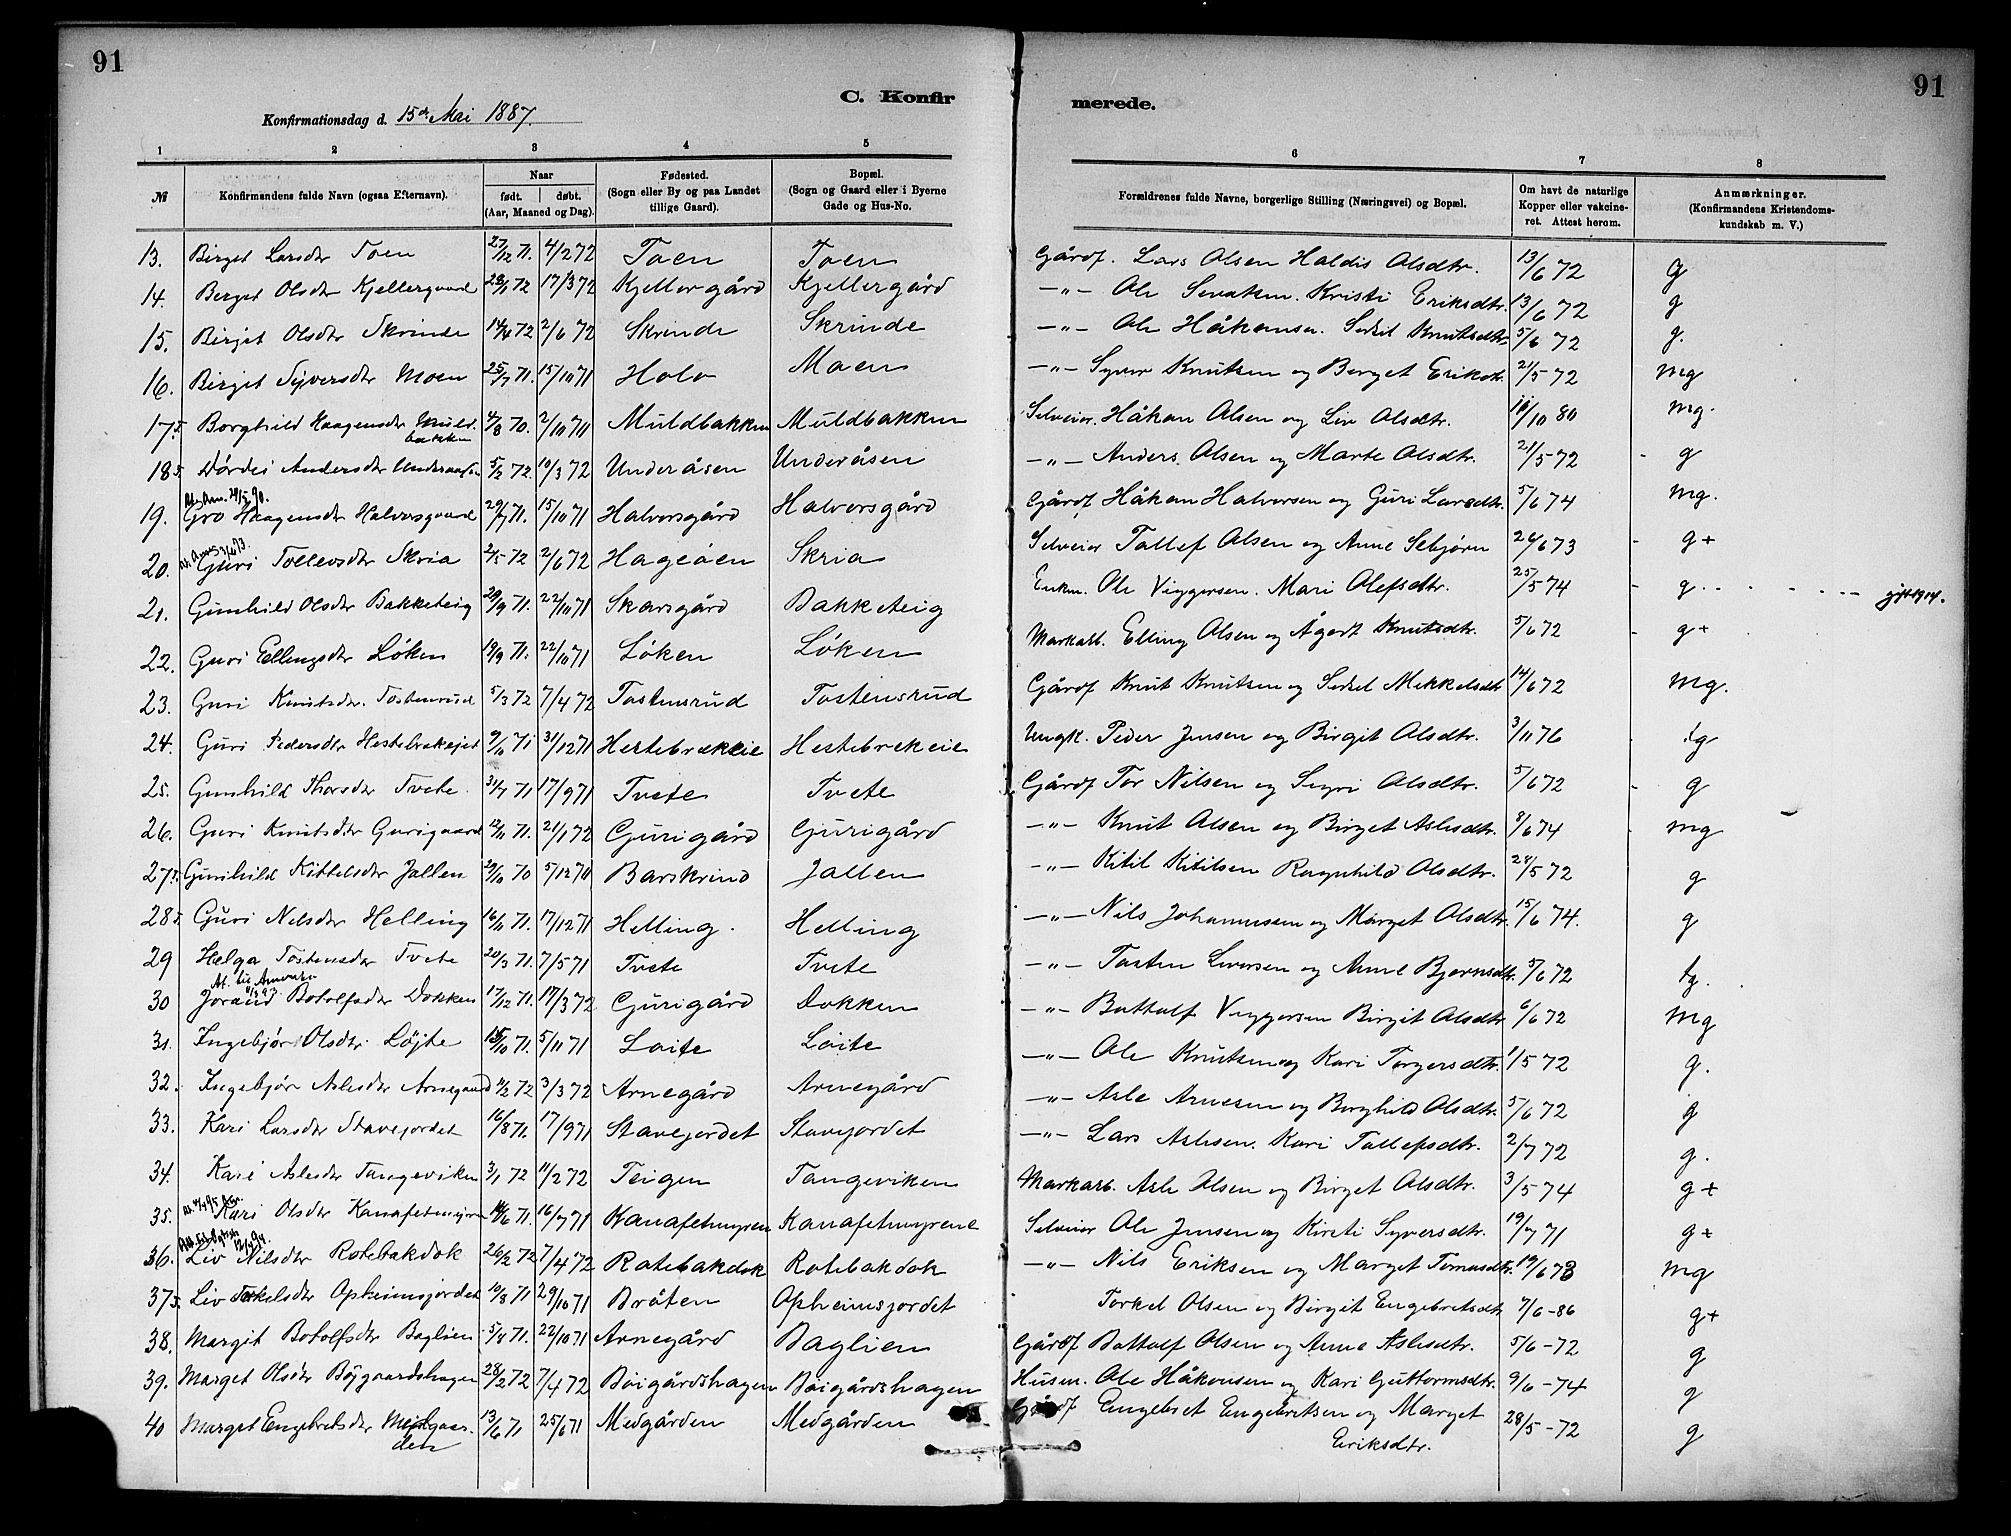 91
91
C. Konfir
merede.
Konfirmationsdag d. 15de Mai 1887.
1 2 3 4 5 6 7 8
№ Konfirmandens fulde Navn (ogsaa Efternavn). Naar født. døbt. (Aar, Maaned og Dag). Fødested. (Sogn eller By og paa Landet tillige Gaard). Bopæl. (Sogn og Gaard eller i Byerne Gade og Hus-No. Forældrenes fulde Navne, borgerlige Stilling (Næringsvei) og Bopæl. Om havt de naturlige Kopper eller vakcineret. Attest herom. Anmærkninger. (Konfirmandens Kristendomskundskab m. V.)
13. Birget Larsdtr Toen 27/12 71. 4/2 72 Toen Toen Gårdf. Lars Olsen Haldis Olsdtr. 13/6 72 g
14. Berget Olsdtr Kjellergaard 28/1 72 17/3 72 Kjellergård Kjellergård -"- Ole Kristi Eriksdtr. 13/6 72 g
15. Birgit Olsdtr Skrinde 72 2/6 72 Skrinde Skrinde -"- Ole Håkonsen. Sidsel Knutsdtr. 5/6 72 g.
16. Birgit Syversdtr Moen 25/7 71. 15/10 71 Holo Moen -"- Syver Knutsen og Berget Eriksdtr. 21/5 72 mg
17. Borghild Haagensdtr Muldbakken 4/8 70. 2/10 70 Muldbakken Muldbakken Selveier. Håkon Olsen og Liv Olsdtr. 11/10 80 mg.
18. Dørdei Andersdtr Underaasen 5/2 72 10/3 72 Underåsen Underåsen -"- Anders Olsen og Marte Olsdtr. 21/5 72 g
19. Gro Haagensdtr Halvorsgaard 29/7 71. 15/10 71 Halvorsgård Halvorsgård Gårdf Håkon Halvorsen og Guri Larsdtr. 5/6 74 mg.
20. Guri Tollevsdtr Skria 2/5 72 2/6 72 Hageåen Skria Selveier Tollef Olsen og Anne Sebjørn 26/6 73 g+
21. Gunhild Olsdtr Bakketeig 29/9 71. 22/10 71 Skarsgård Bakketeig Enkm. Ole Viggersen. Mari Olefsdtr. 25/5 74 g gift 1914.
22. Guri Ellingsdtr Løken 19/9 71. 22/10 71 Løken Løken Markarb. Elling Olsen og Ågot Knutsdtr. 5/6 72 g+
23. Guri Knutsdtr. Tostensrud 5/3 72 7/4 72 Tostensrud Tostensrud Gårdf Knut Knutsen og Sidsel Mikkelsdtr 14/6 72 mg.
24. Guri Pedersdtr Hestebrekeiet 9/11 71 31/12 71 Hestebrekeie Hestebrekeie Ungk. Peder Jensen og Birgit Olsdtr. 3/11 76 tg
25. Gunhild Thorsdtr Tvete 31/7 71 17/9 71 Tvete Tvete Gårdf Tor Nilsen og Sigri Olsdtr. 5/6 72 g
26. Guri Knutsdtr Gurigaard 12/11 71. 21/1 72 Gurigård Gurigård -"- Knut Olsen og Birget Aslesdtr. 8/6 74 mg
27. Gunhild Kittelsdtr Jallen 29/10 70 5/12 70 Barskrind Jallen -"- Kitil Kitilsen Ragnhild Olsdtr. 28/5 72 g
28. Guri Nilsdtr Helling 16/11 71. 17/12 71 Helling. Helling -"- Nils Johannesen og Marget Olsdtr. 15/6 74. g
29 Helga Tostensdtr Tvete 20/3 71. 7/5 71 Tvete Tvete -"- Tosten Iversen og Anne Bjørnsdtr. 5/6 72 tg.
30 Jorand Botolfsdtr Dokken 17/12 71. 17/3 72 Gurigård Dokken -"- Bottolf Viggersen Birgit Olsdtr 6/6 72 mg
31. Ingebjør Olsdtr. Løjte 15/10 71. 5/11 71 Loite Loite -"- Ole Knutsen og Kari Torgersdtr. 1/5 72 g.
32. Ingebjør Aslesdtr Arnegaard 11/2 72 3/3 72 Arnegård Arnegård -"- Asle Arnesen og Borghild Olsdtr. 5/6 72 g
33. Kari Larsdtr Stavejordet 16/8 71. 17/9 71 Stavejordet Stavejordet -"- Lars Aslesen. Kari Tollefsdtr. 2/7 72 g.
34. Kari Aslesdtr Tangeviken 3/1 72 11/2 72 Teigen Tangeviken Markarb. Asle Olsen og Birget Olsdtr. 3/5 74 g+
35. Kari Olsdtr Kanafetmyren 14/6 71. 16/7 71 Kanafetmyren Kanafetmyrene Selveier Ole Jensen og Kirsti Syversdtr. 19/7 71 g+
36. Liv Nilsdtr Rotebakdok 26/2 72 7/4 72 Rotebakdok Rotebakdok -"- Nils Eriksen og Marget Tomasdtr. 19/6 73 mg
37. Liv Torkelsdtr Opheimsjordet 10/8 71 29/10 71 Bråten Opheimsjordet Torkel Olsen og Birgit Engebretsdtr 7/6-86 g+
38. Margit Botolfsdtr Baglien 5/8 71. 22/10 71 Arnegård Baglien Gårdf Bottolf Olsen og Anne Aslesdtr. 5/6-72 g
39. Marget Olsdtr Böygaardshagen 28/2 72 7/4 72 Böigårdshagen Böigårdshagen Husm. Ole Håkonsen og Kari Guttormsdtr. 9/6-74 g
40 Marget Engebretsdtr Medgaarden 13/6 71 25/6 71 Medgården Medgården Gårdf Engebret Engebretsen og Marget Eriksdtr. 28/5-72 g